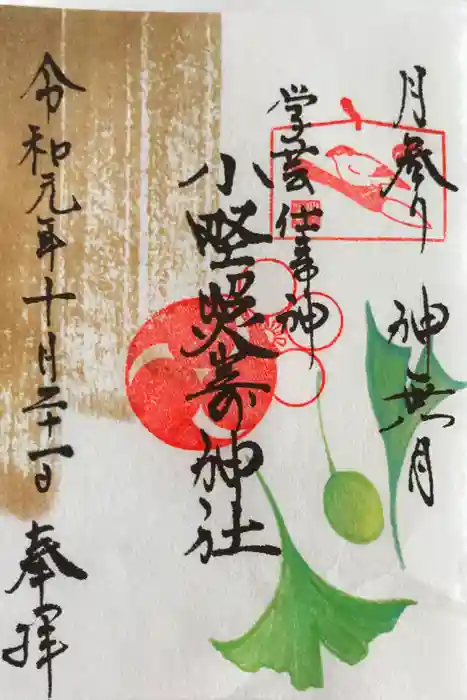 月参り 神無月
学芸仕事神
小野照崎神社
令和元年十月二十一日 奉拝